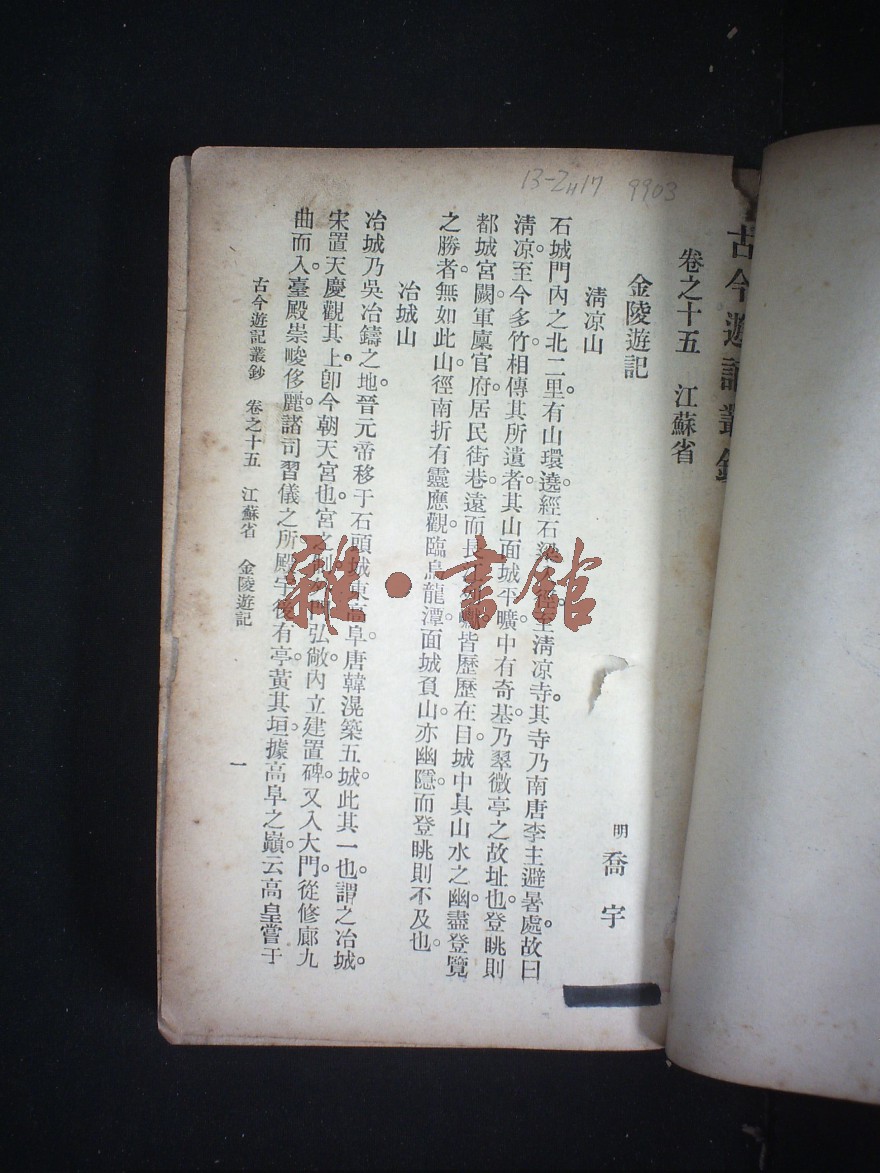 13-2H17 9903
古今遊記叢鈔
卷之十五 江蘇省
金陵遊記
明 喬宇
清涼山
石城門內之北二里。有山環遶。經石梁至清涼寺。其寺乃南唐李主避暑處。故曰
清涼。至今多竹。相傳其所遺者。其山面城。平曠中有奇基。乃翠微亭之故址也。登眺則
都城宮闕。軍廩官府。居民街巷。遠而長皆歷歷在目。城中具山水之幽。盡登覽
之勝者。無如此山。徑南折有靈應觀。臨烏龍潭。面城負山。亦幽隱。而登眺則不及也。
冶城山
冶城乃吳冶鑄之地。晉元帝移于石頭城東高阜。唐韓滉築五城。此其一也。謂之冶城。
宋置天慶觀其上。卽今朝天宮也。宮之制弘敞。內立建置碑。又入大門。從修廊九
曲而入。臺殿崇峻侈麗。諸司習儀之所。殿宇後有亭。黃其垣。據高阜之巔。云高皇嘗于
古今遊記叢鈔 卷之十五 江蘇省 金陵遊記
一
雜·書館